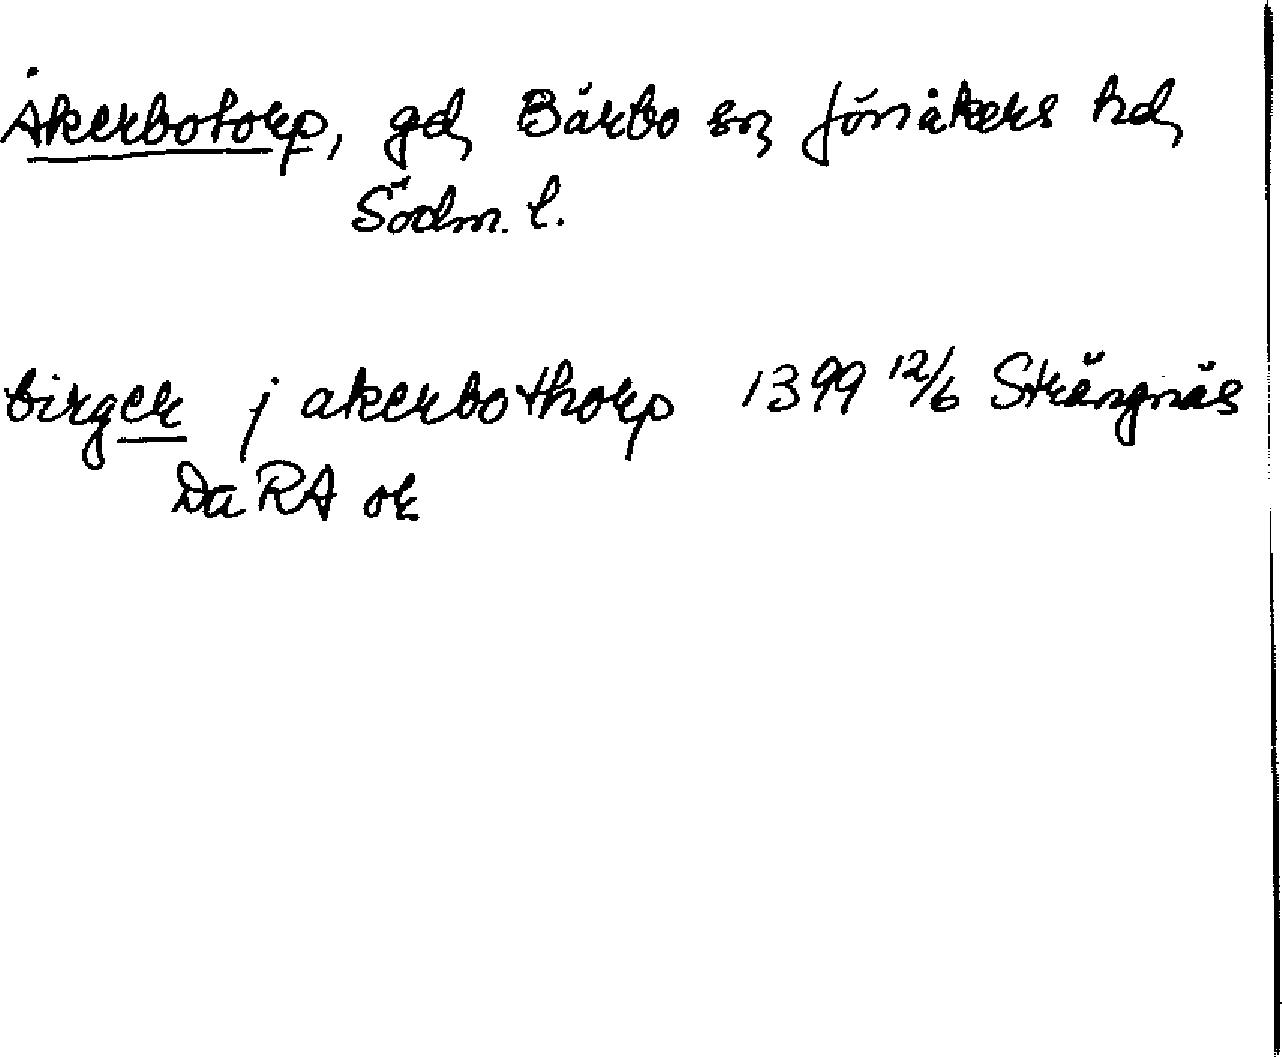 Åkerbotorp, gd, Bärbo sn, Jönåkers hd,
Södm. l.
birger j akerbothorp 1399 12/6 Strängnäs
Da RA or